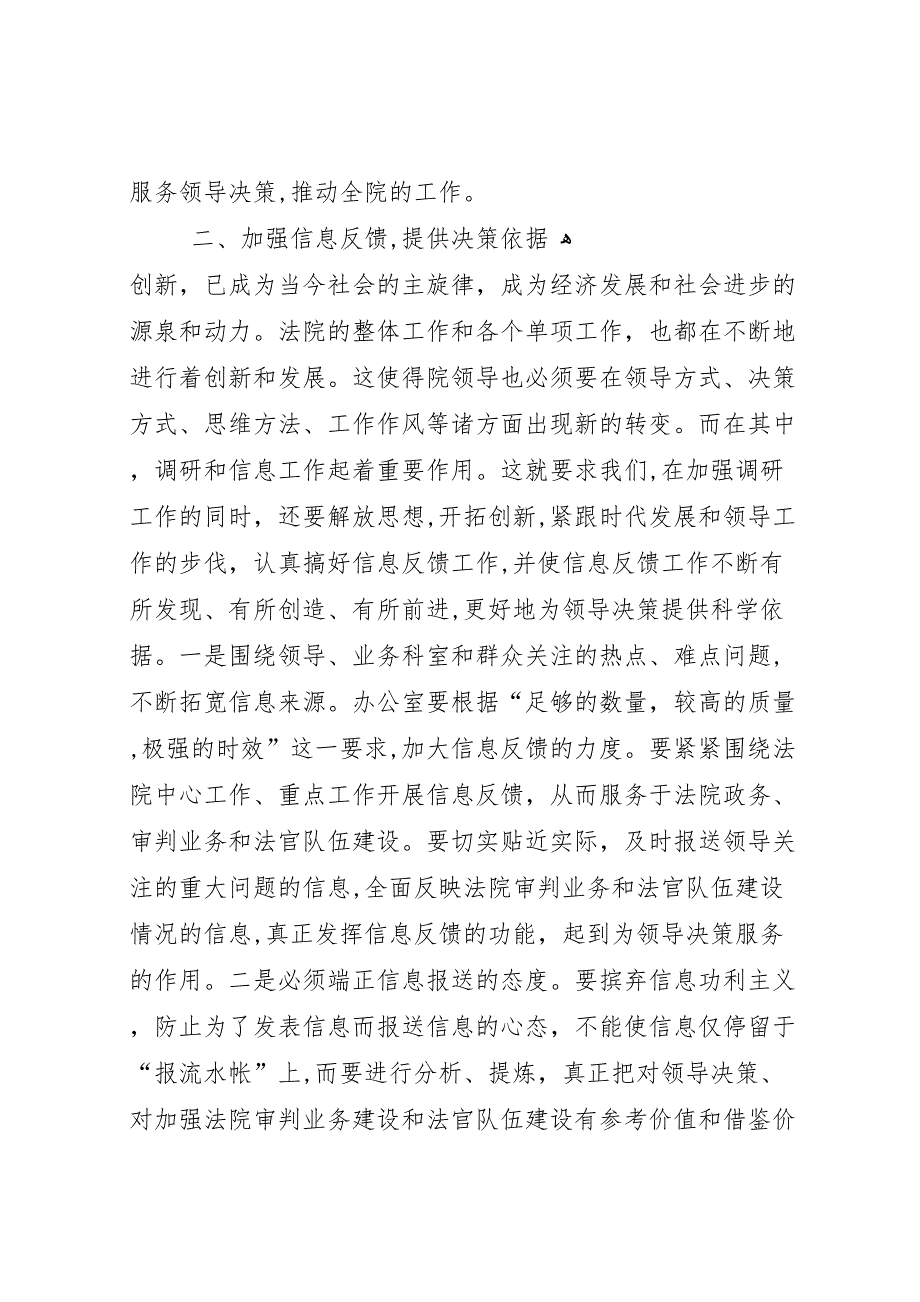 服务领导决策,推动全院的工作。
二、加强信息反馈,提供决策依据 ﻫ
创新，已成为当今社会的主旋律，成为经济发展和社会进步的
源泉和动力。法院的整体工作和各个单项工作，也都在不断地
进行着创新和发展。这使得院领导也必须要在领导方式、决策
方式、思维方法、工作作风等诸方面出现新的转变。而在其中
，调研和信息工作起着重要作用。这就要求我们,在加强调研
工作的同时，还要解放思想,开拓创新,紧跟时代发展和领导工
作的步伐，认真搞好信息反馈工作,并使信息反馈工作不断有
所发现、有所创造、有所前进,更好地为领导决策提供科学依
据。一是围绕领导、业务科室和群众关注的热点、难点问题,
不断拓宽信息来源。办公室要根据“足够的数量，较高的质量
,极强的时效”这一要求,加大信息反馈的力度。要紧紧围绕法
院中心工作、重点工作开展信息反馈，从而服务于法院政务、
审判业务和法官队伍建设。要切实贴近实际，及时报送领导关
注的重大问题的信息,全面反映法院审判业务和法官队伍建设
情况的信息,真正发挥信息反馈的功能，起到为领导决策服务
的作用。二是必须端正信息报送的态度。要摈弃信息功利主义
，防止为了发表信息而报送信息的心态，不能使信息仅停留于
“报流水帐”上,而要进行分析、提炼，真正把对领导决策、
对加强法院审判业务建设和法官队伍建设有参考价值和借鉴价